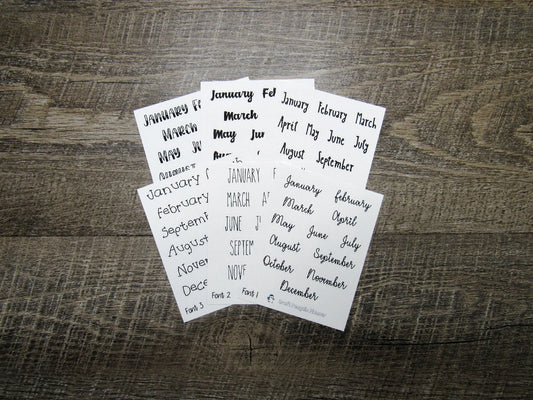 JANUARY FE
MARCH
MAY JU
January Feb
March
May Jun
January February March
April May June July
August September
January
February
Septem
August
Novem
Decem
Font 3
JANUARY F
MARCH A
JUNE J
SEPTEM
NOVE
Font 2
January February
March April
May June July
August September
October November
December
Font 1